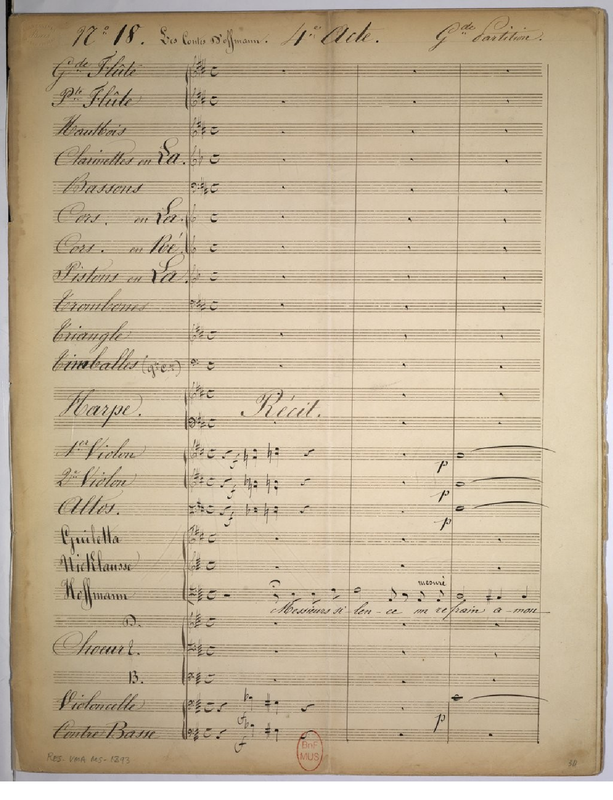 Nº 18. Les Contes d'Hoffmann. 4e Acte. Gde Partition.
Gde Flûte
Pte Flûte
Hautbois
Clarinettes en La.
Bassons
Cors. en La.
Cors. en Ré.
Pistons en La
Trombones
Triangle
Timballes
Harpe. Récit.
1er Violon
p
2me Violon
p
Altos.
p
Guiletta
Nicklausse
Hoffmann
mesuré
Messieurs si - len - ce un refrain a - mou -
D.
Choeur T.
B.
Violoncelle
p
Contre Basse
BnF
MUS
Rés. Vma ms-1213